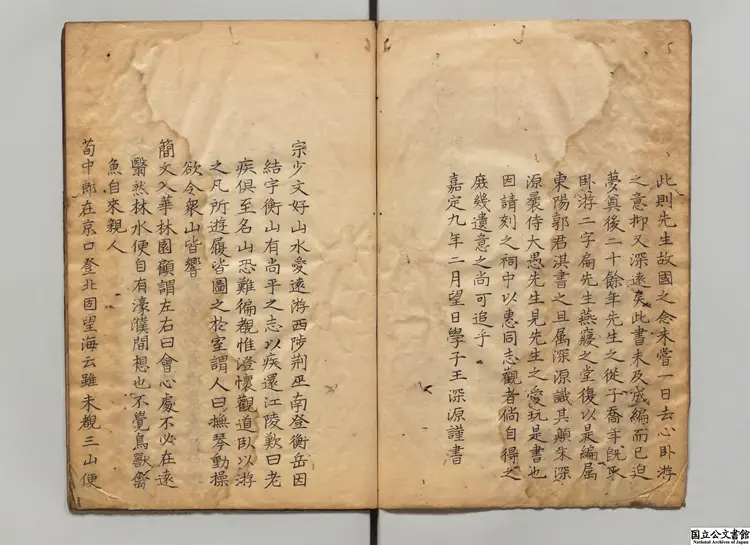 此則先生故國之念未嘗一日去心卧游
之意抑又深遠矣此書未及成編而已迫
夢奠後二十餘年先生之從子喬年既取
卧游二字扁先生燕寢之堂復以是編屬
東陽郭君淇書之且屬深源識其顛末深
源曩侍大愚先生見先生之愛玩是書也
因請刻之祠中以惠同志觀者倘自得之
庶幾遺意之尚可追乎
嘉定九年二月望日學子王深源謹書
宗少文好山水愛遠游西陟荆巫南登衡岳因
結宇衡山有尚平之志以疾還江陵歎曰老
疾俱至名山恐難徧覩惟澄懷觀道卧以游
之凡所遊履皆圖之於室謂人曰撫琴動操
欲令衆山皆響
簡文入華林園顧謂左右曰會心處不必在遠
翳然林水便自有濠濮間想也不覺鳥獸禽
魚自來親人
荀中郎在京口登北固望海云雖未覩三山便
国立公文書館
National Archives of Japan